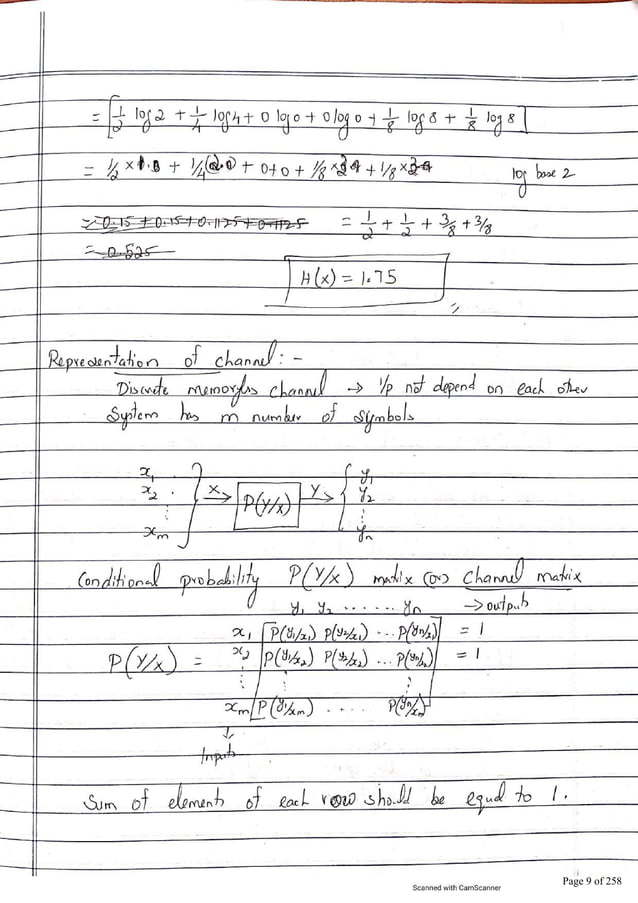 = [ 1/2 log 2 + 1/4 log 4 + 0 log 0 + 0 log 0 + 1/8 log 8 + 1/8 log 8 ]
= 1/2 × 1.0 + 1/4(2.0) + 0 + 0 + 1/8 × 3 + 1/8 × 3 log base 2
= 0.15 + 0.15 + 0.1125 + 0.1125 = 1/2 + 1/2 + 3/8 + 3/8
= 0.525
H(x) = 1.75
Representation of channel : -
Discrete memoryless channel → i/p not depend on each other
System has m number of symbols
x₁ y₁
x₂ . X → P(Y/X) Y → y₂
⋮ ⋮
xm yn
Conditional probability P(Y/X) matrix (or) Channel matrix
y₁ y₂ ...... yn → outputs
x₁ P(y₁/x₁) P(y₂/x₁) ... P(yn/x₁) = 1
P(Y/X) = x₂ P(y₁/x₂) P(y₂/x₂) ... P(yn/x₂) = 1
⋮ ⋮ ⋮
xm P(y₁/xm) ..... P(yn/xm)
↓
Inputs
Sum of elements of each row should be equal to 1.
Page 9 of 258
Scanned with CamScanner